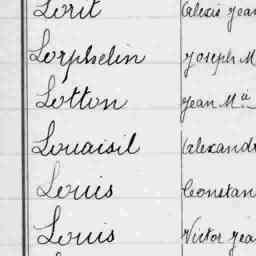 Lorit Alexis Jean
Lorphelin Joseph M
Lotton Jean M.ie
Louaisil Alexand
Louis Constan
Louis Victor Jea